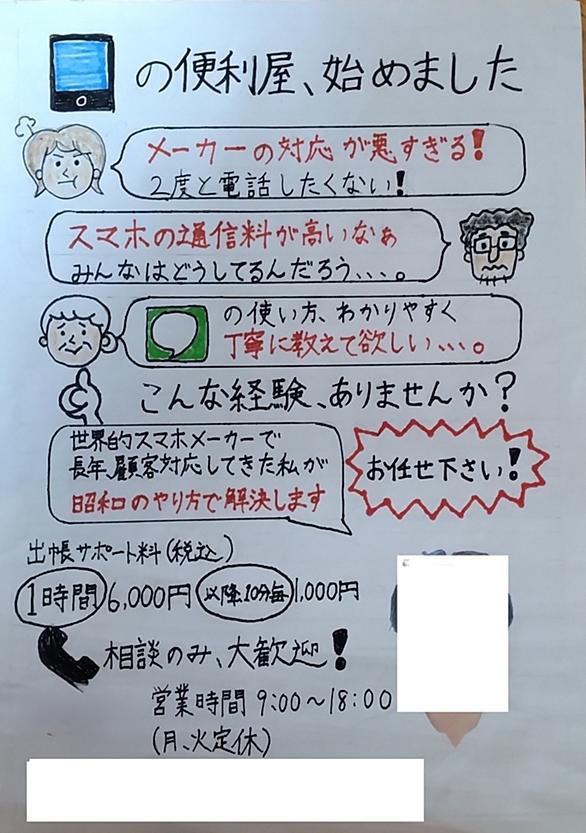 の便利屋、始めました
メーカーの対応が悪すぎる!
2度と電話したくない!
スマホの通信料が高いなぁ
みんなはどうしてるんだろう、、、。
の使い方、わかりやすく
丁寧に教えて欲しい、、、。
こんな経験、ありませんか?
世界的スマホメーカーで
長年顧客対応してきた私が
昭和のやり方で解決します
お任せ下さい!
出帳サポート料(税込)
1時間 6,000円 以降10分毎 1,000円
相談のみ、大歓迎!
営業時間 9:00~18:00
(月、火定休)